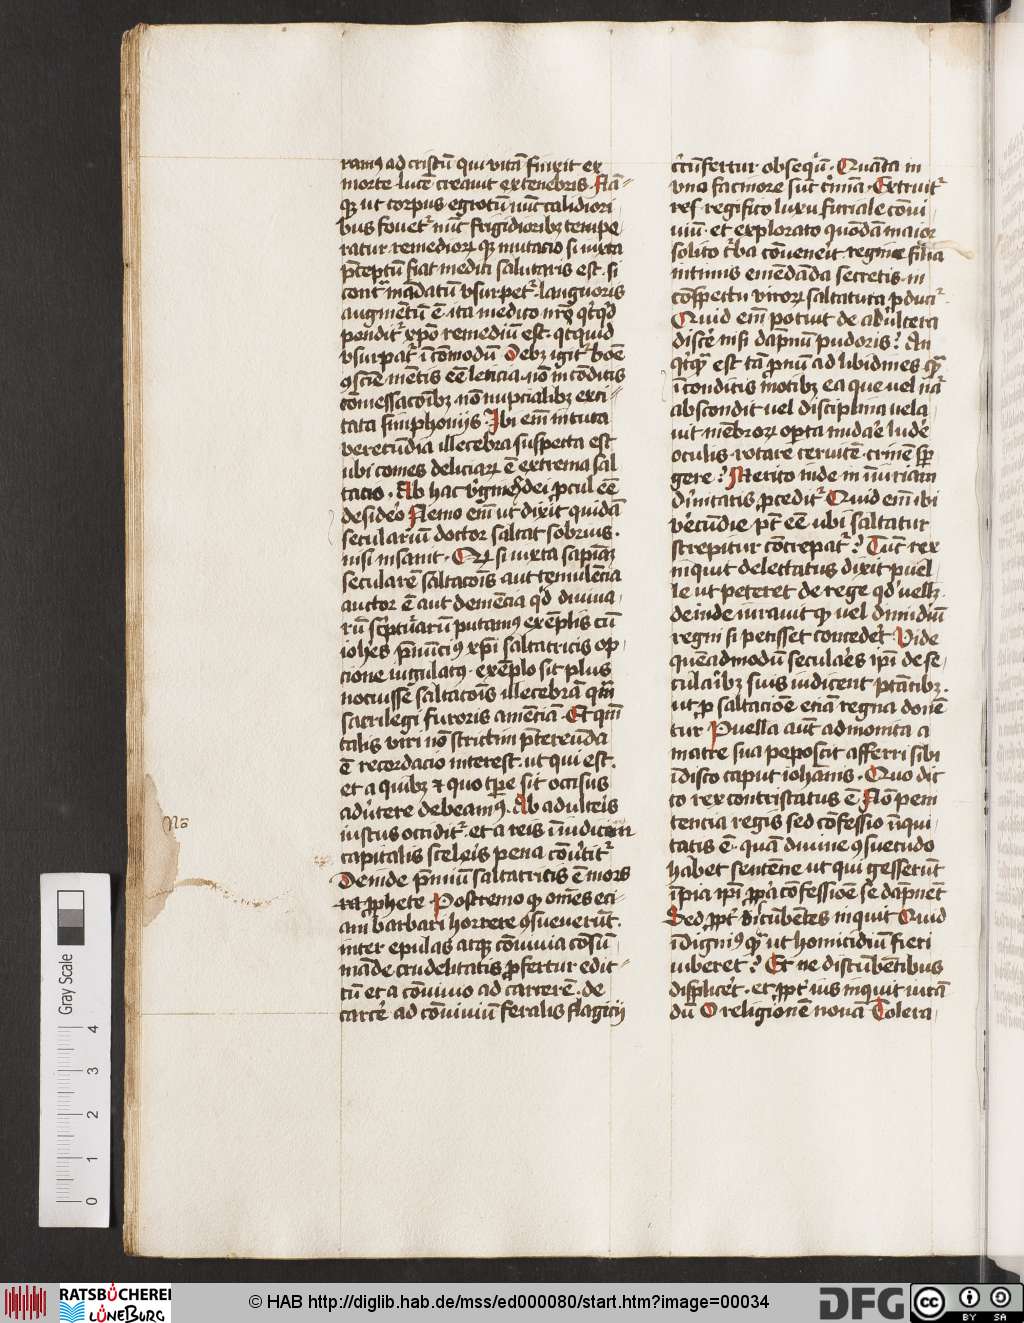 ramꝰ ad cristū qui vitā finxit ex
morte lucē creauit ex tenebris. Nā=
qꝫ ut corpus egrotū nūc calidiori
bus fouet᷑ nūc frigidioribꝫ tempe
ratur remediorꝝ qꝫ mutacio si iuxta
p̄ceptū fiat medici salutaris est. si
contᷓ mādatū vsurpet᷑. languoris
augmētū ē. ita medico nr̄o
pendit᷑ xp̄o remediū est. qͥcquid
vsurpat᷑ īcōmodū Debꝫ igit᷑ bōe
ꝯscīe mētis eē leticia. nō incōditis
cōmessacōibꝫ. nō nupcialibꝫ exci=
tata simphoniis. Ibi em̄ intuta
verecūdia illecebra suspecta est
ubi comes deliciarꝝ ē extrema sal
tacio. Ab hac v̓gines dei procul eē
desidero Nemo em̄ ut dixit quidā
secularium doctor saltat sobrius.
nisi insanit. Qd̓ si iuxta sapiam
secularē saltacōis aut temulēcia
auctor ē aut demēcia qd̓ diuina
rū scripturarū putamꝰ exēplis cū
iohēs p̄nūciꝰ xp̄i saltatricis op
cione iugulatꝰ. exēplo sit plus
nocuisse saltacōis illecebrā qͣm
sacrilegi furoris amēciā. Et qm̄
talis viri nō strictim p̄tereūda
ē recordacio interest. ut qui est.
et a quibꝫ ⁊ quo tp̄e sit occisus
aduertere debeamꝰ. Ab adulteris
iustus occidit᷑. et a reis ī iudicium
capitalis sceleris pena cōuertit᷑
Deinde p̄miū saltatricis ē mors
ꝓphete Postremo qꝫ om̄es eci
am barbari horrere ꝯsueuerūt.
inter epulas atqꝫ cōuiuia cōsū
māde crudelitatis profertur edic=
tū et a cōuiuio ad carcerē. de
carcere ad cōuiuiū feralis flagicij
circūfertur obsequiū. Quāta in
vno facinore sūt crimina. Extruit᷑
ref regifico luxu furiale cōui
uiū. et explorato quādam maior
solito turba cōuenerit regine filia
intimis emēdāda secretis. in
cōspectu virorꝝ saltatura ꝓducit᷑
Quid em̄ potuit de adultera
discere nisi dāpnū pudoris? An
qͥcqͣ est tā pronū ad libidines qͣ
īconditis motibꝫ ea que uel nāt
abscondit uel disciplina uela
uit mēbrorꝝ opta nudare ludere
oculis. rotare ceruicē. crinē sp̄
gere? Merito inde in īiuriam
diuinitatis procedit᷑ Quid em̄ ibi
verecūdie pt̄ eē ubi saltatur
strepitur cōcrepat᷑? Tūc rex
inquit delectatus dixit puel
le ut peteret de rege qd̓ vellꝫ.
deinde iurauit qꝫ uel dimidiū
regni si petisset concederet Vide
quēadmodū seculares ip̄i de se
cularibꝫ suis iudicent ptātibꝫ.
ut p saltacioē eciā regna donē
tur Puella aūt admonita a
matre sua poposcit afferri sibi
īdisco caput iohānis. Quo dic
to rex contristatus ē Nō peni
tencia regis sed cōfessio iniqui
tatis ē. quā diuine ꝯsuetudo
habet sentēcie ut qui gesserūt
īpia ip̄i ppͥa cōfessioē se dāpnēt
Sed ꝓpt̓ discūbētes inquit Quid
īdigniꝰ qͣ ut homicidiū fieri
iuberet? Et ne discūbētibus
displiceret. et ꝓpt̓ ius inquit iurā
dū O religionē nouā Tolera
Na
Gray Scale
0 1 2 3 4
RATSBÜCHEREI
LÜNEBURG
© HAB http://diglib.hab.de/mss/ed000080/start.htm?image=00034
DFG
cc BY SA